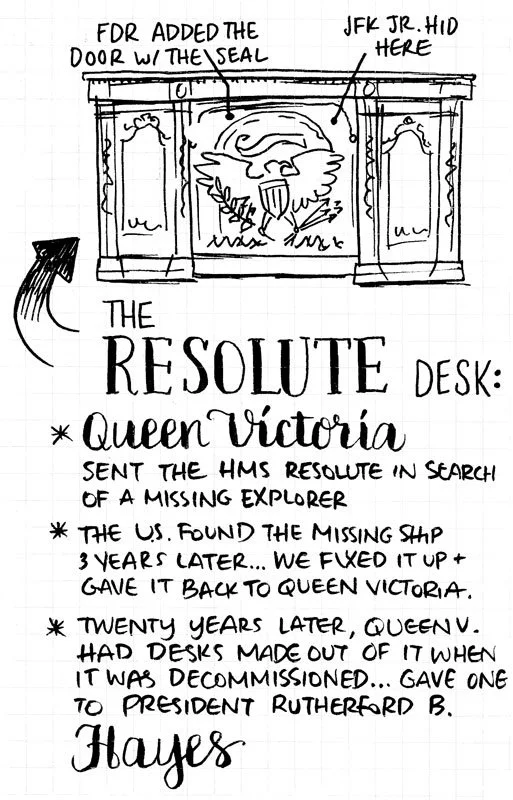 FDR ADDED THE
DOOR W/ THE SEAL
JFK JR. HID
HERE
THE
RESOLUTE DESK:
* Queen Victoria
SENT THE HMS RESOLUTE IN SEARCH
OF A MISSING EXPLORER
* THE U.S. FOUND THE MISSING SHIP
3 YEARS LATER... WE FIXED IT UP +
GAVE IT BACK TO QUEEN VICTORIA.
* TWENTY YEARS LATER, QUEEN V.
HAD DESKS MADE OUT OF IT WHEN
IT WAS DECOMMISSIONED... GAVE ONE
TO PRESIDENT RUTHERFORD B.
Hayes